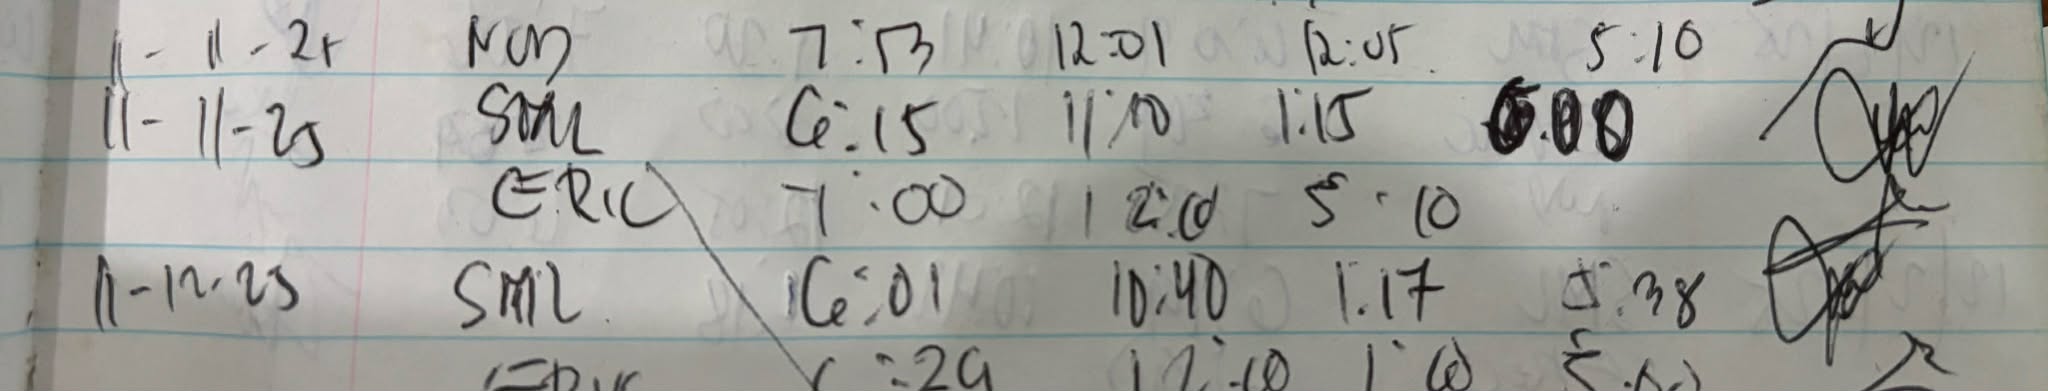 11-11-25 NOD 7:53 12:01 12:05 5:10
11-11-25 SML 6:15 11:10 1:15
ERIC 7:00 12:10 5:10
11-12-25 SML 6:01 10:40 1:17 5:38
ERIC :29 12:10 1:10